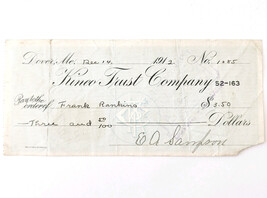 Dover, Me. Dec 14, 1912 No. 1085
Kineo Trust Company 52-163
Pay to the order of Frank Rankins $3.50
Three and 50/100 Dollars
E A Sampson